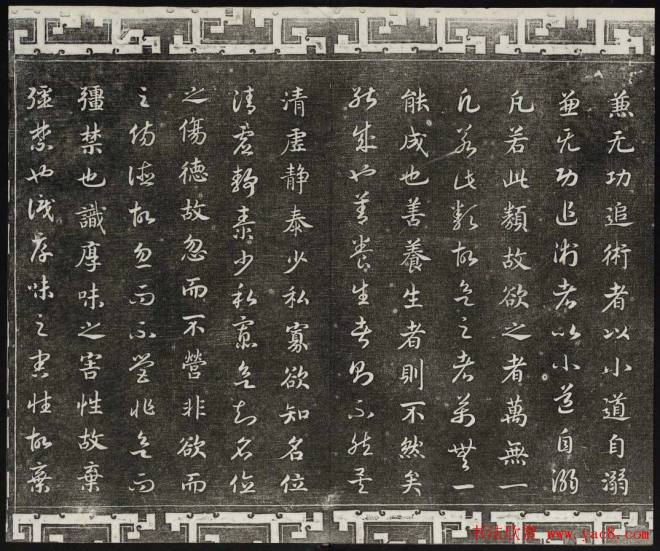 兼无功追術者以小道自溺
兼无功追術者以小道自溺
凡若此類故欲之者萬無一
凡若此類故欲之者萬無一
能成也善養生者則不然矣
能成也善養生者則不然矣
清虛静泰少私寡欲知名位
清虛静泰少私寡欲知名位
之傷德故忽而不營非欲而
之傷德故忽而不營非欲而
彊禁也識厚味之害性故棄
彊禁也識厚味之害性故棄
书法欣赏 www.yac8.com